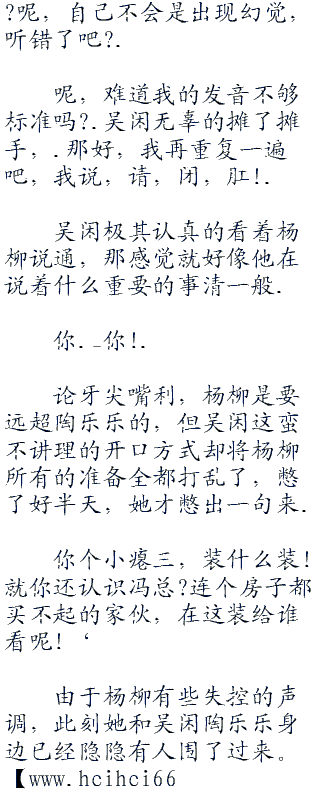 ?呢，自己不会是出现幻觉，
听错了吧?.
呢，难道我的发音不够
标准吗?.吴闲无辜的摊了摊
手，.那好，我再重复一遍
吧，我说，请，闭，肛!.
吴闲极其认真的看着杨
柳说通，那感觉就好像他在
说着什么重要的事清一般.
你._你!.
论牙尖嘴利，杨柳是要
远超陶乐乐的，但吴闲这蛮
不讲理的开口方式却将杨柳
所有的准备全都打乱了，憋
了好半天，她才憋出一句来.
你个小瘪三，装什么装!
就你还认识冯总?连个房子都
买不起的家伙，在这装给谁
看呢! ‘
由于杨柳有些失控的声
调，此刻她和吴闲陶乐乐身
边已经隐隐有人围了过来。
【www.hcihci66